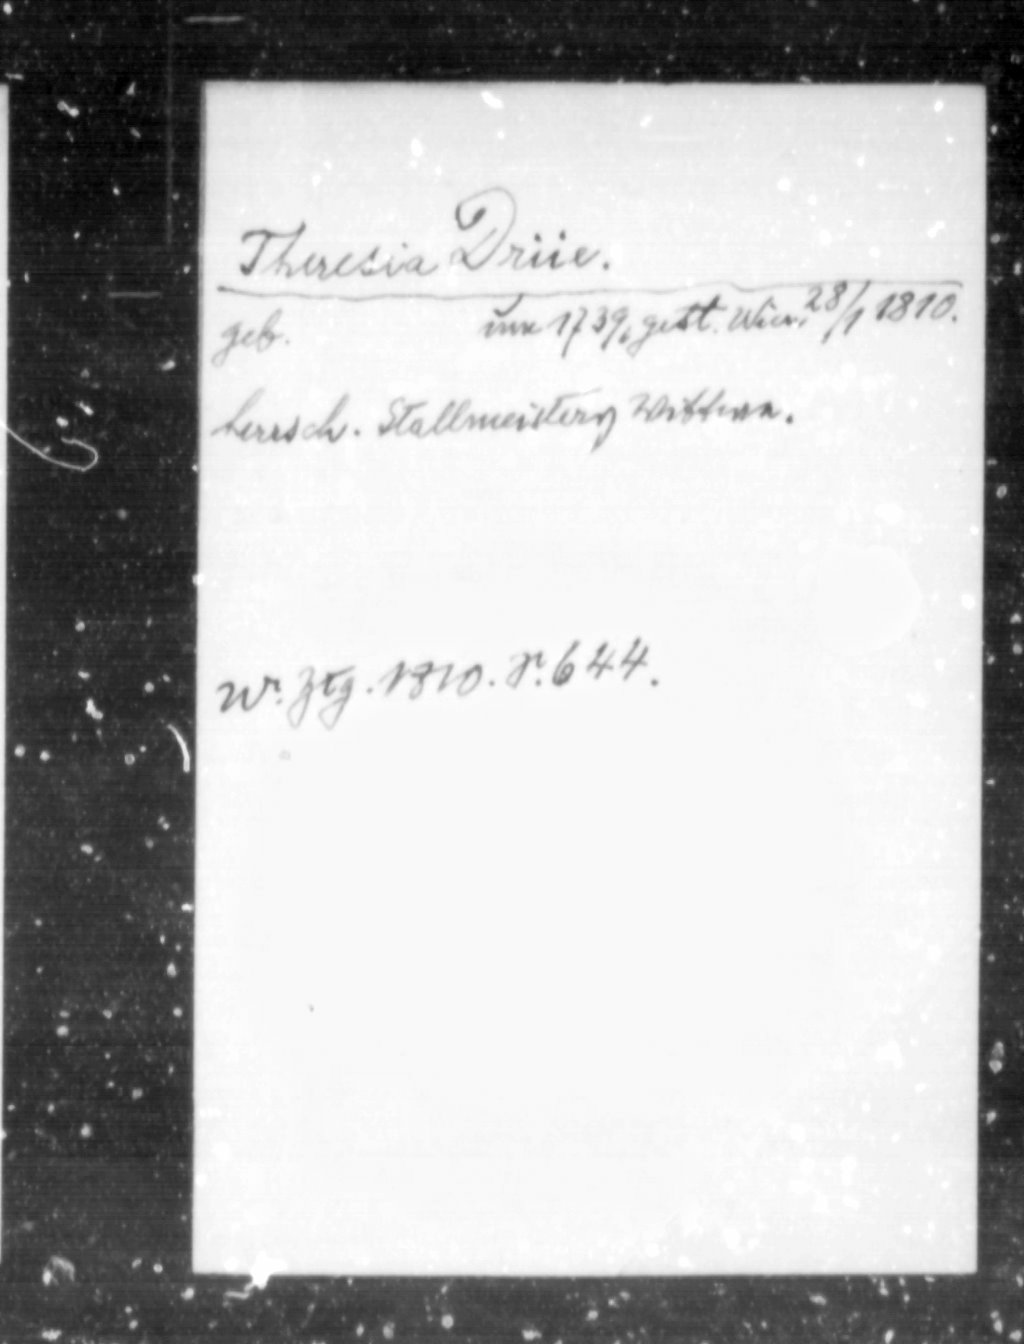 Theresia Driie.
geb. um 1739, gest. Wien, 28/1 1810.
herrsch. Stallmeisters Wittwe.
Wr. Ztg. 1810. S. 644.